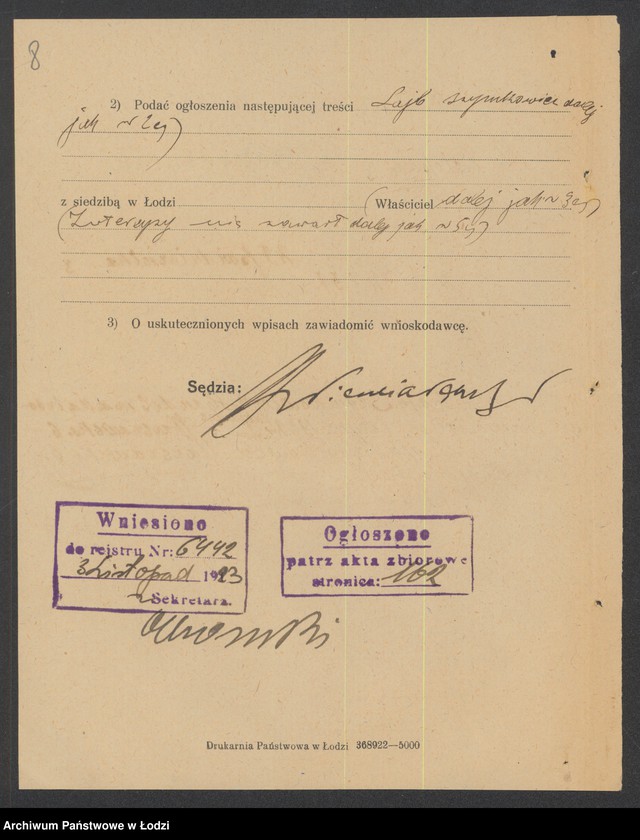 8
2) Podać ogłoszenia następującej treści Lajb Szymkowicz dalej
jak w 2ej)
z siedzibą w Łodzi (Właściciel dalej jak w 3ej)
(Intercyzy nie zawarł dalej jak w 5ej)
3) O uskutecznionych wpisach zawiadomić wnioskodawcę.
Sędzia:
Wniesiono
do rejstru Nr: 6442
3 Listopad 1923
Sekretarz.
Ogłoszono
patrz akta zbiorowe
stronica: 162
Drukarnia Państwowa w Łodzi 368922—5000
Archiwum Państwowe w Łodzi